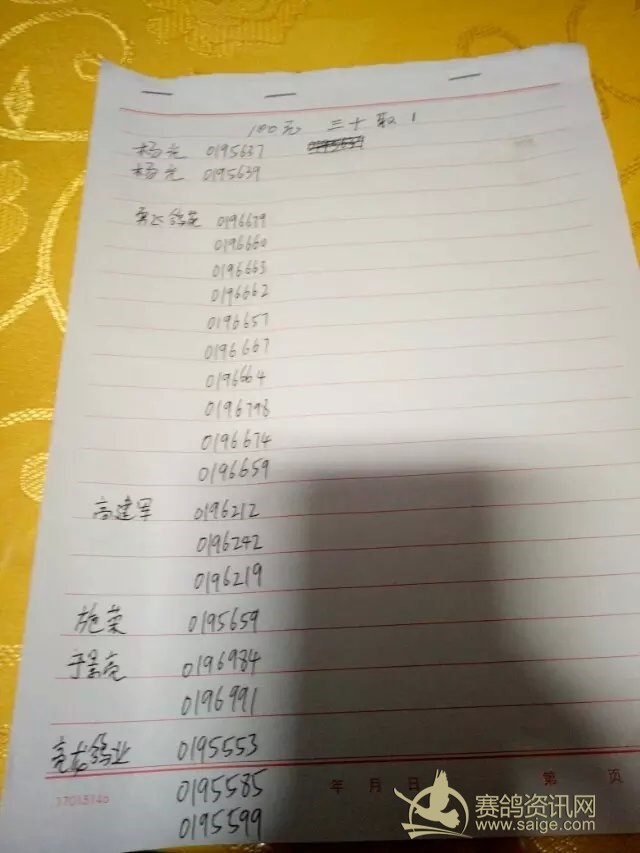 100元 三十取1
杨光 0195637
杨光 0195639
0196679
0196660
0196663
0196662
0196657
0196667
0196664
0196798
0196674
0196659
高建军 0196212
0196242
0196219
施荣 0195659
于景亮 0196984
0196991
亮龙鸽业 0195553
0195585
0195599
年 月 日 第 页
1701514b
赛鸽资讯网
www.saige.com